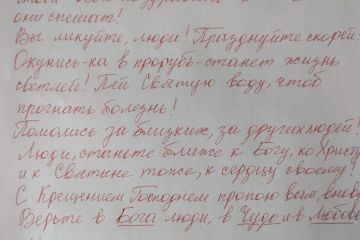 они спешат!
Вы ликуйте, люди! Празднуйте скорей.
Окунись-ка в прорубь-станет жизнь
светлей! Пей Святую воду, чтоб
прогнать болезнь!
Помолись за близких, за других людей!
Люди, станьте ближе к Богу, ко Христу
и к Святыне тоже, к сердцу своему!
С Крещением Господнем пропою вам, вновь
Верьте в Бога люди, в Чудо и в Любовь